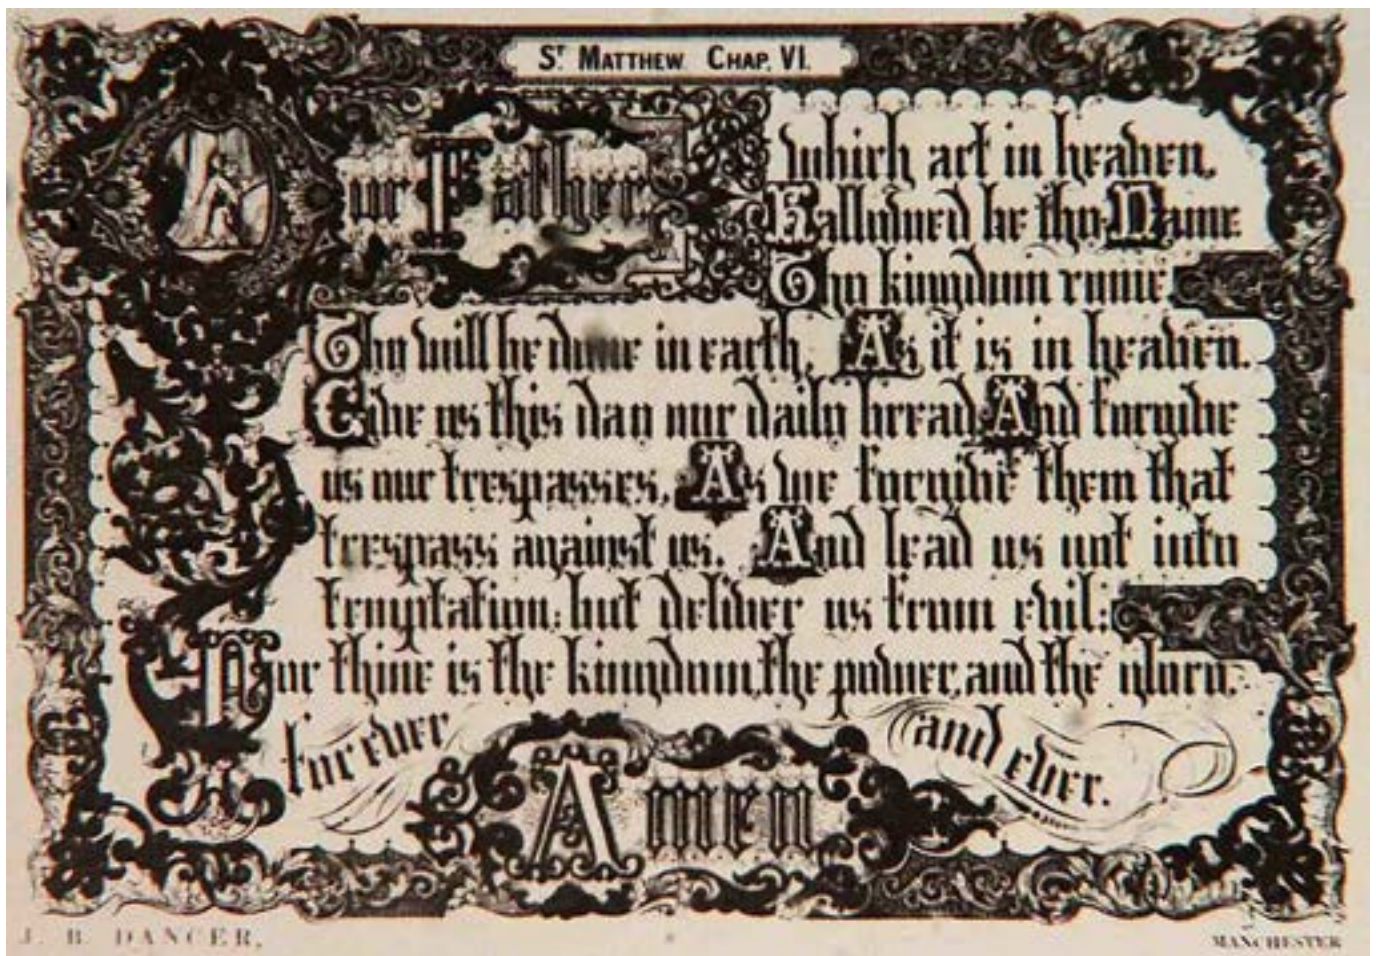 St. MATTHEW. CHAP. VI.
Our Father,
which art in heaven,
Hallowed be thy Name
Thy kingdom come.
Thy will be done in earth, As it is in heaven.
Give us this day our daily bread And forgive
us our trespasses, As we forgive them that
trespass against us. And lead us not into
temptation; but deliver us from evil:
For thine is the kingdom, the power, and the glory,
for ever and ever.
Amen
J. B. DANCER,
MANCHESTER